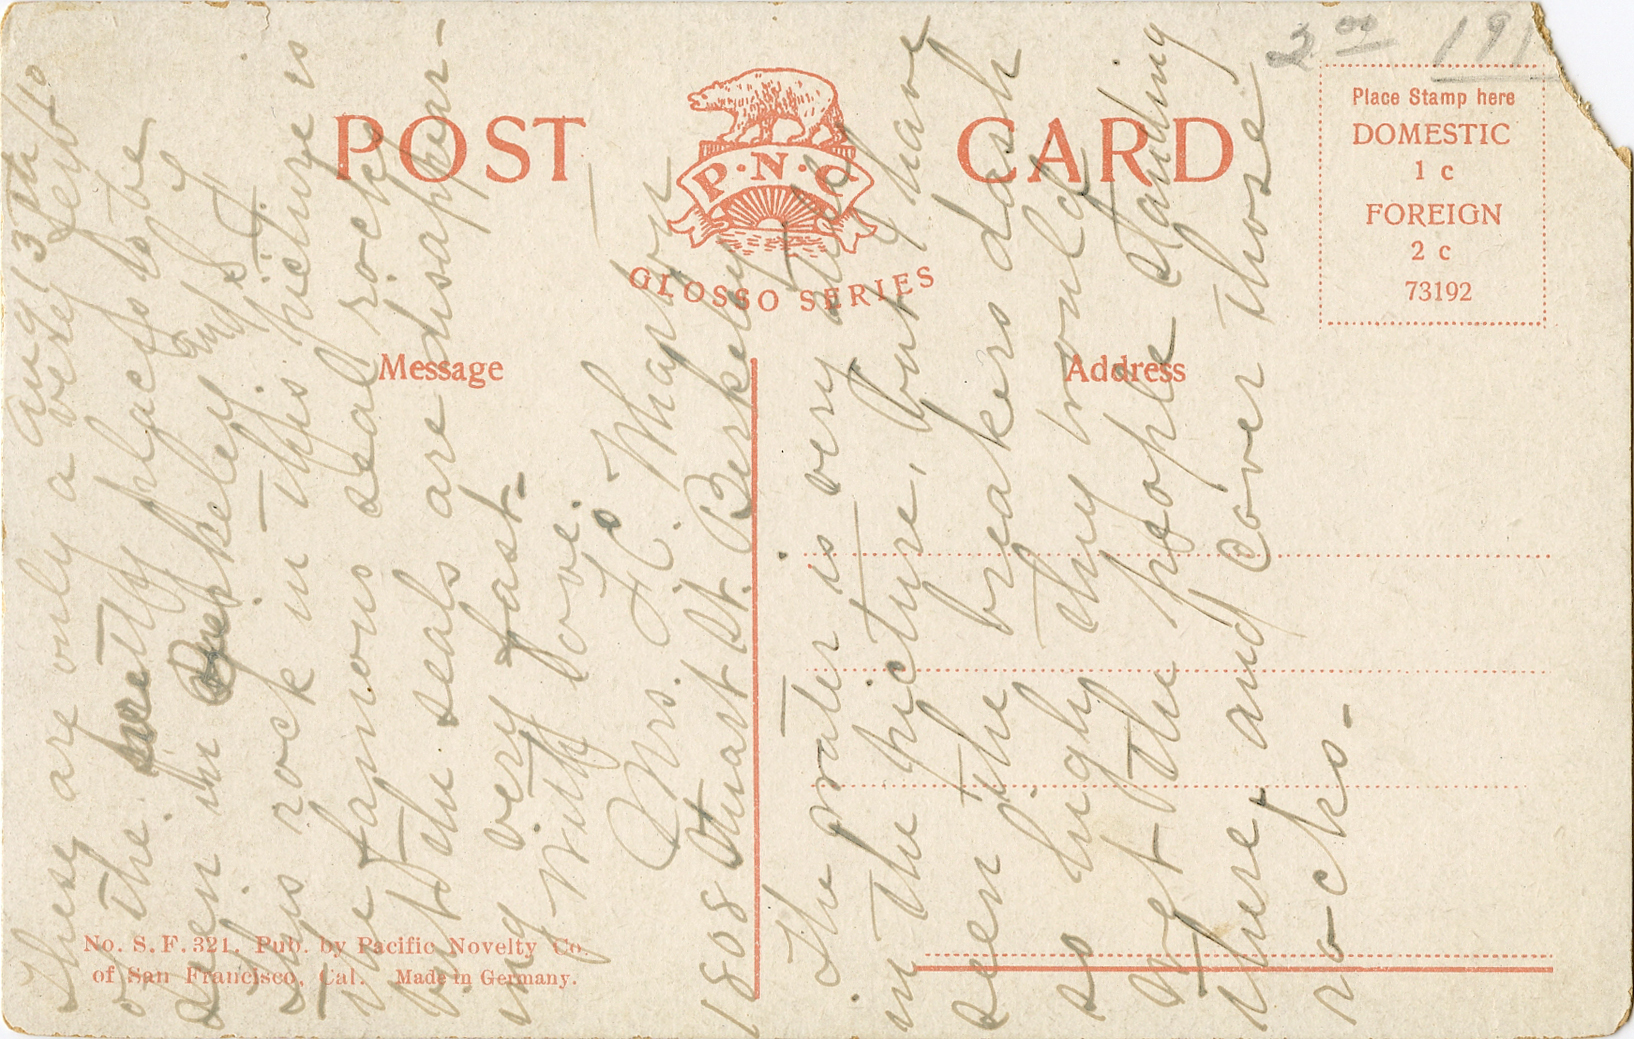 2.00 191
POST CARD
P·N·C
GLOSSO SERIES
Place Stamp here
DOMESTIC
1 c
FOREIGN
2 c
73192
Message
Address
No. S. F. 321. Pub. by Pacific Novelty Co.
of San Francisco, Cal. Made in Germany.
Aug 13th/10
These are only a very few
of the pretty places to be
seen in Berkeley and S. F.
This rock in this picture is
the famous seal rock
but the seals are disappear-
ing very fast-
With love.
Mrs. F. C. Wharton
1808 Stuart St. Berkeley
The water is very
in the picture, but I have
seen the breakers dash
so high they would
wet the people standing
there and cover those
rocks-